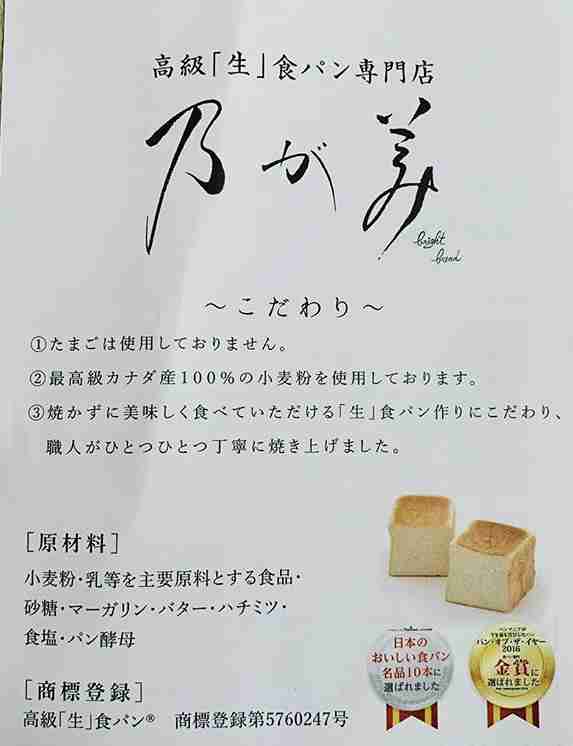 高級「生」食パン専門店
乃が美
bright
bread
～こだわり～
①たまごは使用しておりません。
②最高級カナダ産100%の小麦粉を使用しております。
③焼かずに美味しく食べていただける「生」食パン作りにこだわり、
職人がひとつひとつ丁寧に焼き上げました。
[原材料]
小麦粉・乳等を主要原料とする食品・
砂糖・マーガリン・バター・ハチミツ・
食塩・パン酵母
[商標登録]
高級「生」食パン® 商標登録第5760247号
日本の
おいしい食パン
名品10本に
選ばれました
パン・オブ・ザ・イヤー
2016
金賞に
選ばれました